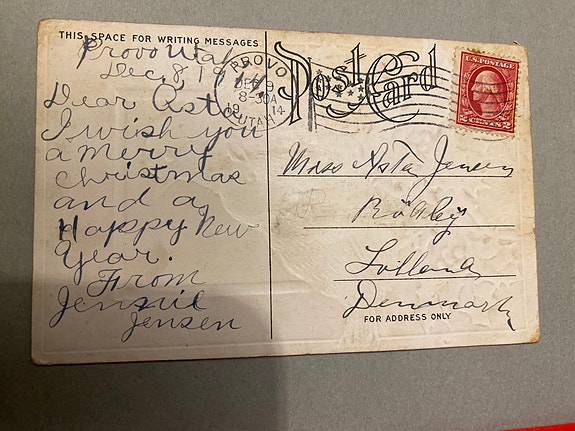 THIS SPACE FOR WRITING MESSAGES
Provo Utah
Dec. 8, 19
Dear Asta
I wish you
a merry
christmas
and a
Happy New
Year.
From
Jennie
Jensen
PROVO
DEC 9
8-30A
19 14
UTAH
Post Card
U.S. POSTAGE
2 CENTS 2
Miss Asta Jensen
Lolland
Denmark
FOR ADDRESS ONLY